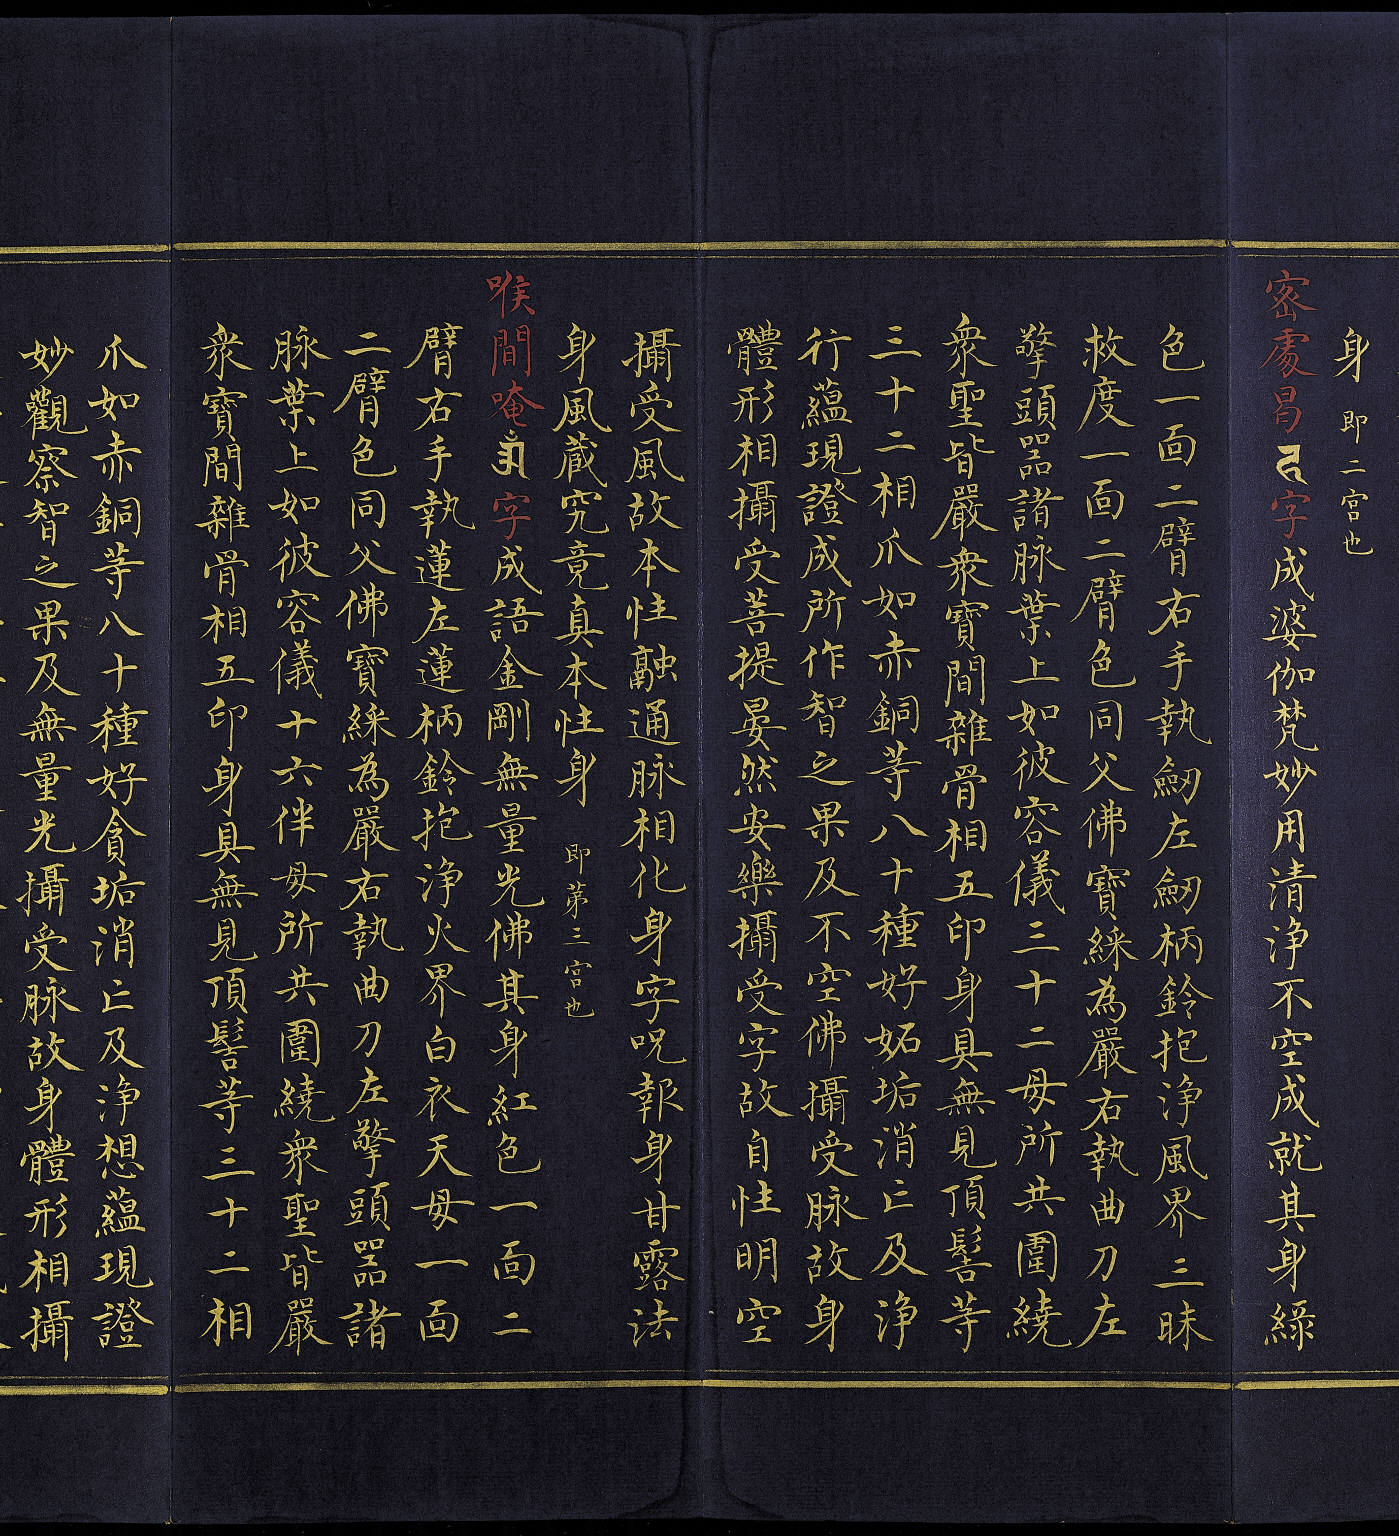 身 即二宮也
密處㫗字成婆伽梵妙用清淨不空成就其身綠
色一面二臂右手執劒左劒柄鈴抱淨風界三昧
救度一面二臂色同父佛寶綵為嚴右執曲刀左
擎頭器諸脉葉上如彼容儀三十二母所共圍繞
衆聖皆嚴衆寶間雜骨相五印身具無見頂髻等
三十二相爪如赤銅等八十種好妬垢消亡及淨
行蘊現證成所作智之果及不空佛攝受脉故身
體形相攝受菩提晏然安樂攝受字故自性明空
攝受風故本性融通脉相化身字呪報身甘露法
身風蔵究竟真本性身 即苐三宮也
喉間唵字成語金剛無量光佛其身紅色一面二
臂右手執蓮左蓮柄鈴抱淨火界白衣天母一面
二臂色同父佛寶綵為嚴右執曲刀左擎頭器諸
脉葉上如彼容儀十六伴母所共圍繞衆聖皆嚴
衆寶間雜骨相五印身具無見頂髻等三十二相
爪如赤銅等八十種好貪垢消亡及淨想蘊現證
妙觀察智之果及無量光攝受脉故身體形相攝